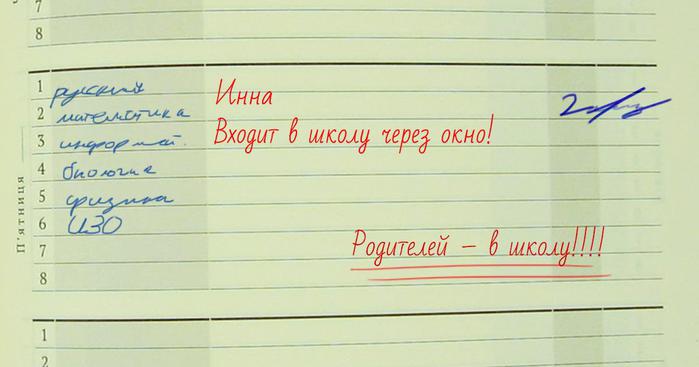 7
8
П'ятниця
1 русский
2 математика
3 информат.
4 биология
5 физика
6 ИЗО
7
8
Инна
Входит в школу через окно!
Родителей – в школу!!!!
1
2